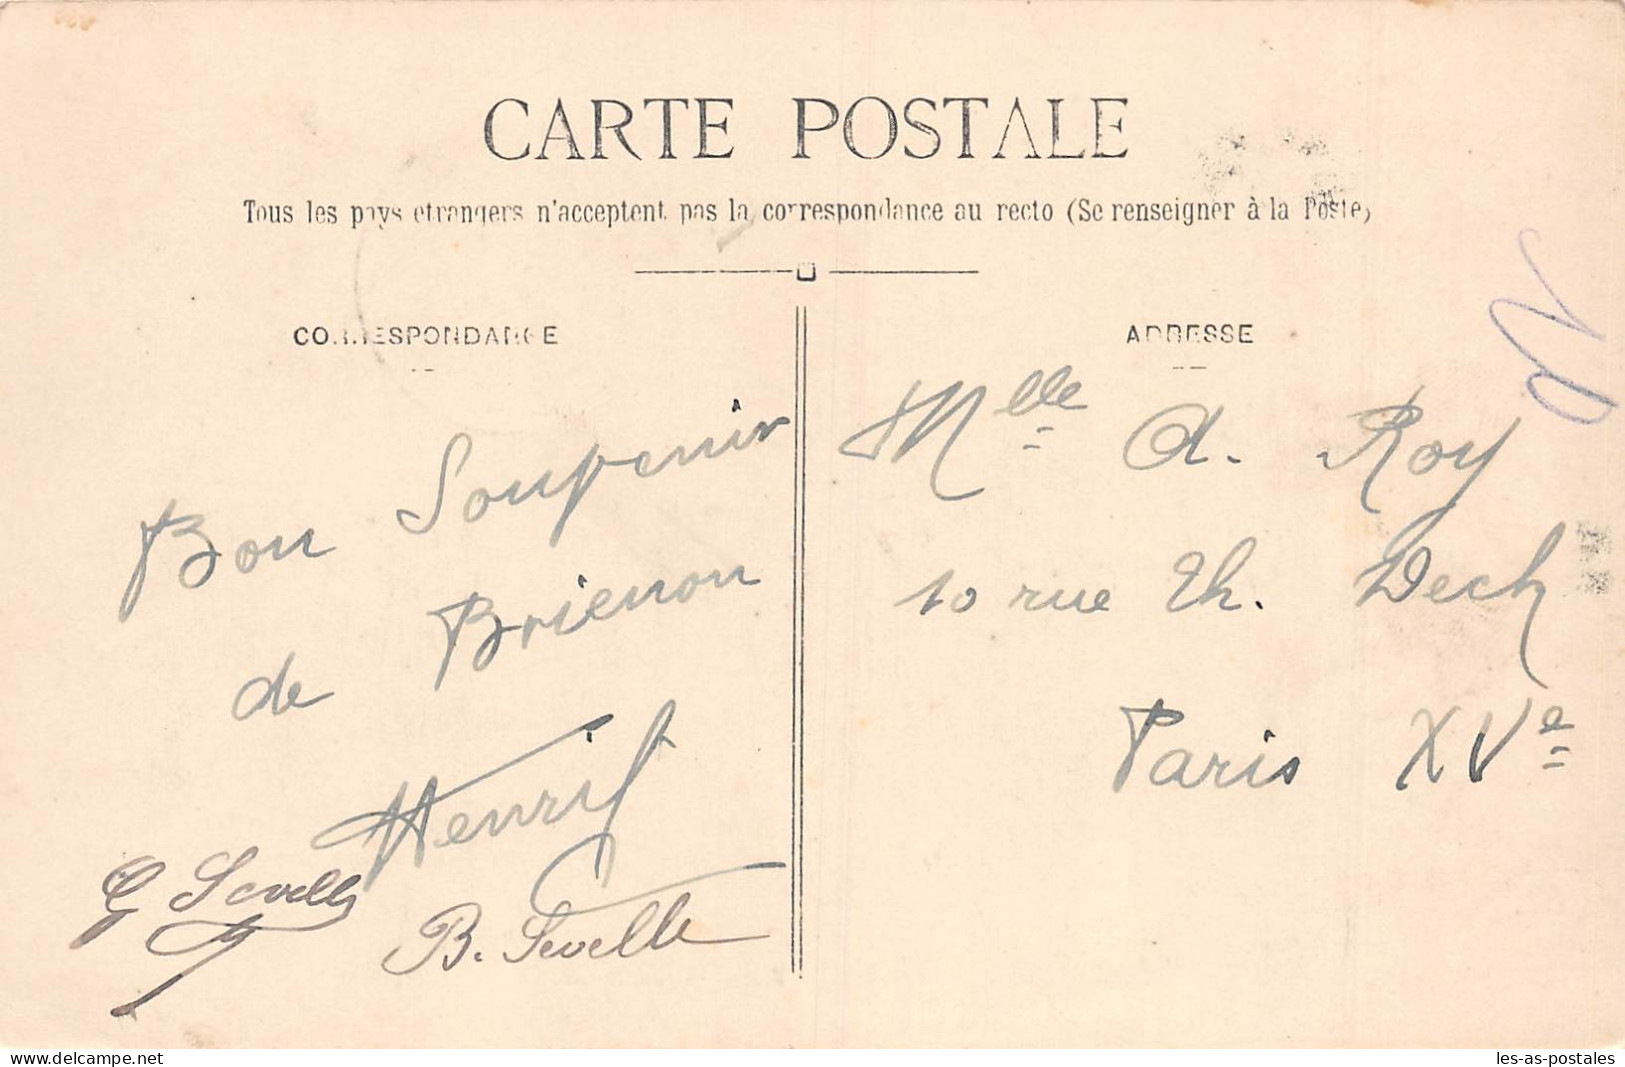 CARTE POSTALE
Tous les pays etrangers n'acceptent pas la correspondance au recto (Se renseigner à la Poste)
CORRESPONDANCE
Bon Souvenir
de Brienon
Henri
G Sevelle
B. Sevelle
ADRESSE
Mlle A. Roy
10 rue Th.
Paris XVe
www.delcampe.net
les-as-postales